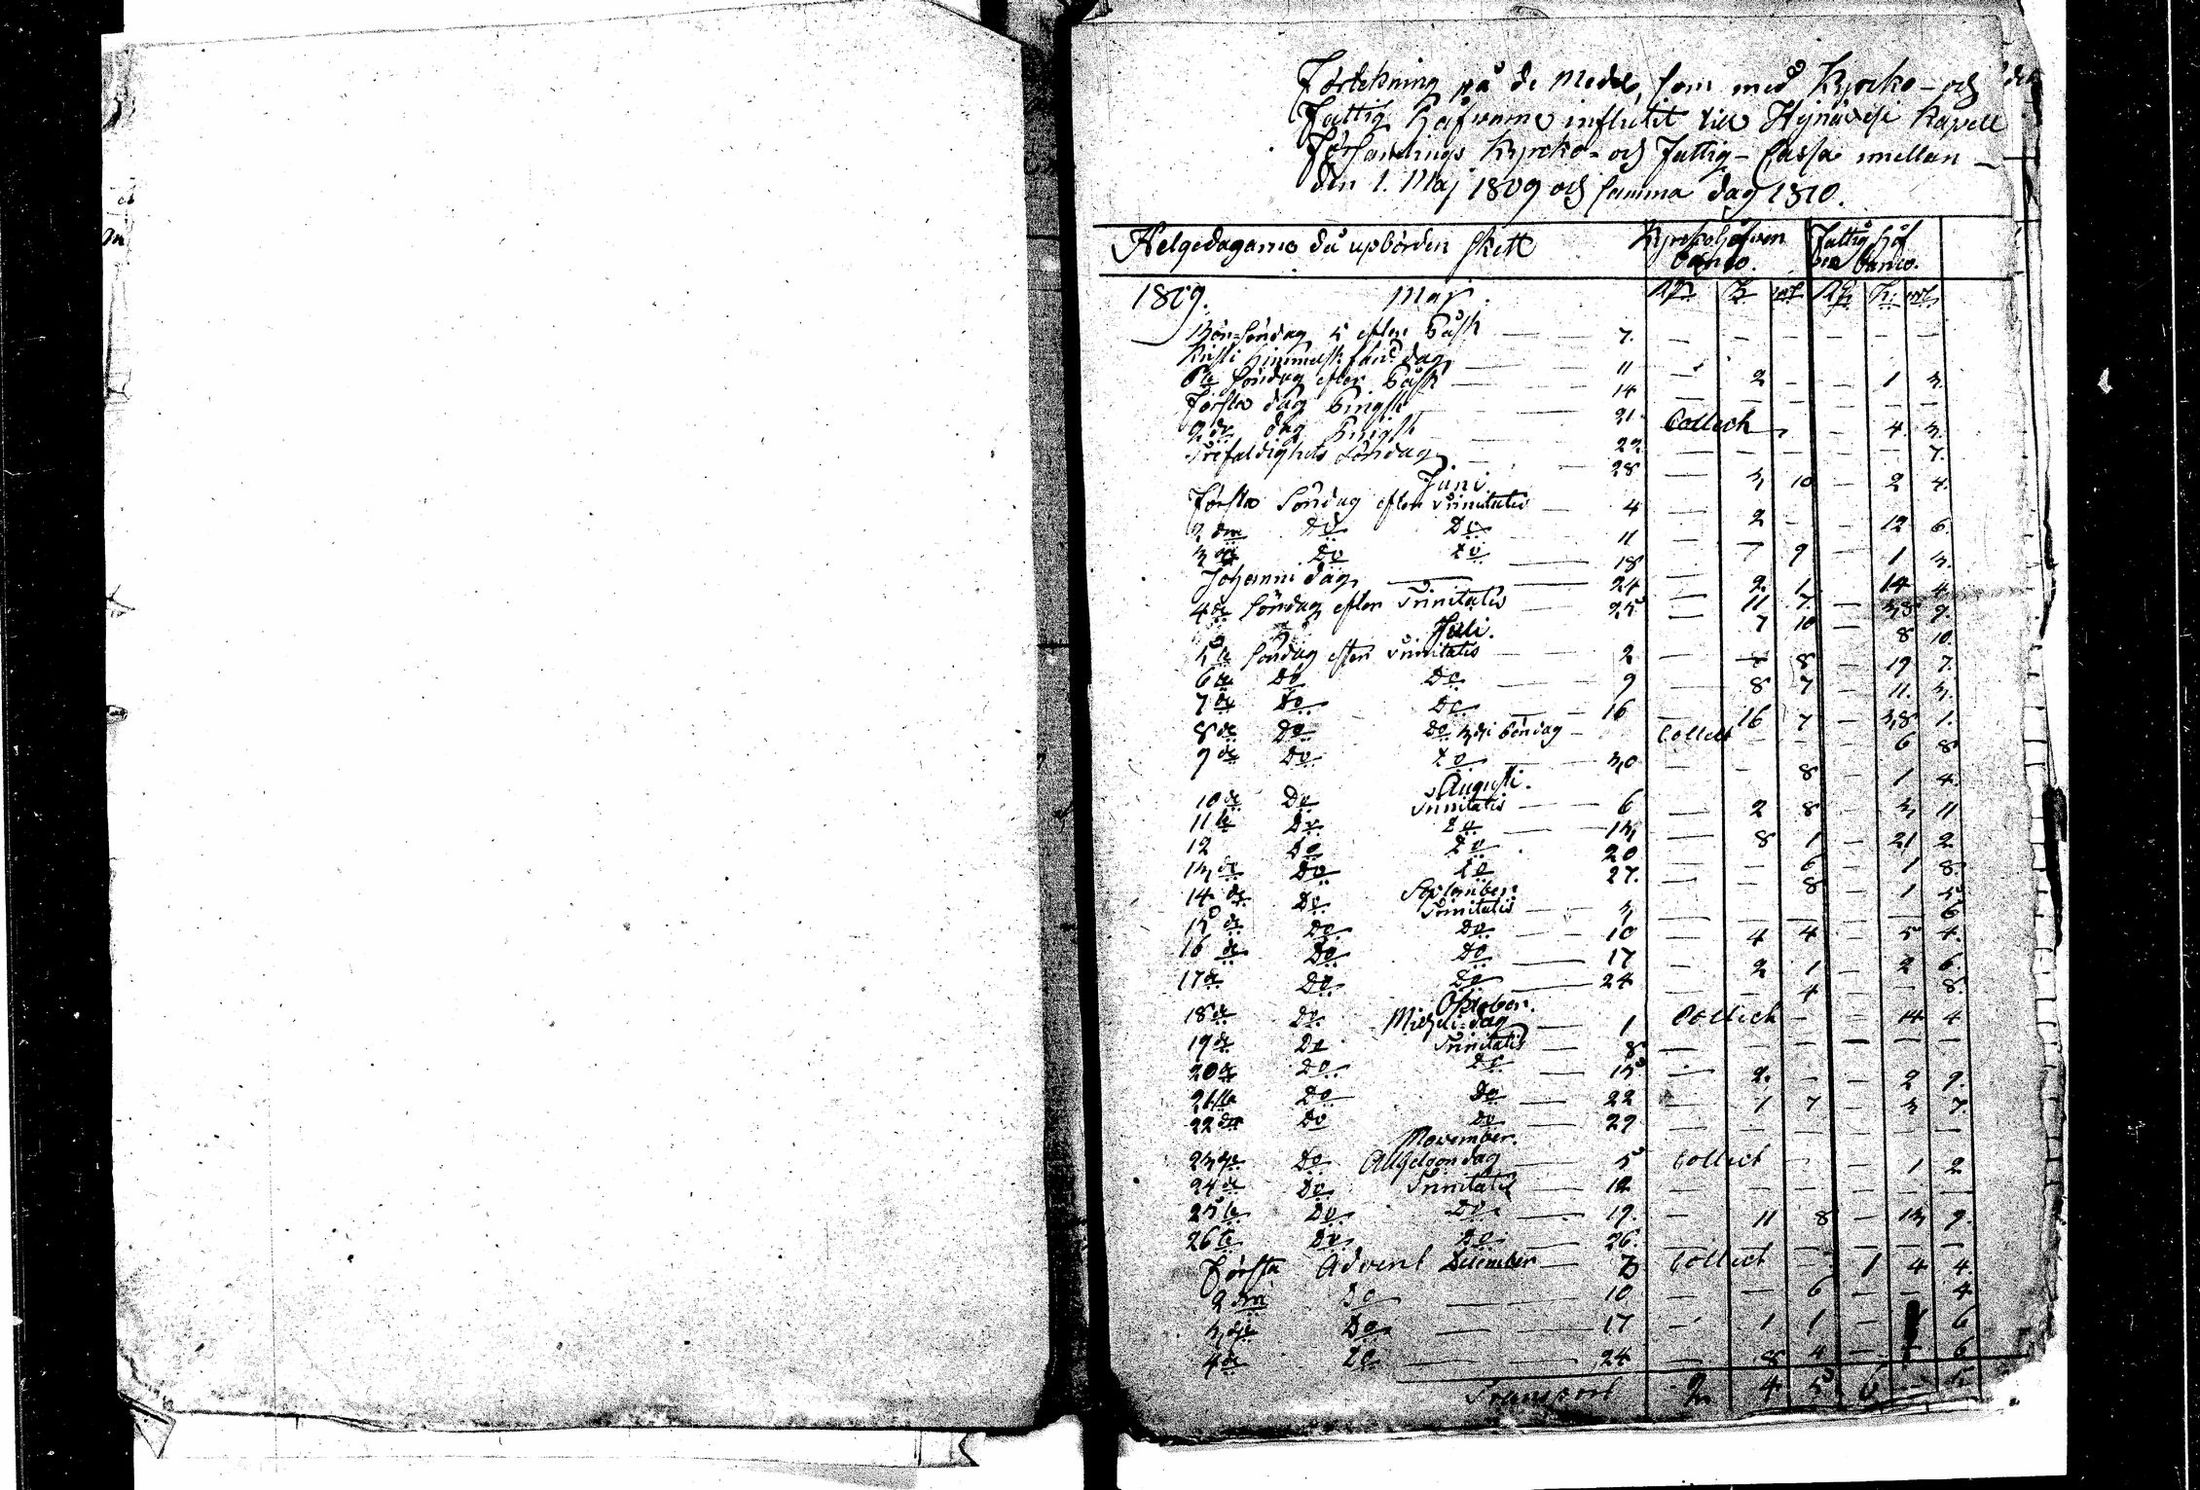 Förtekning på de Medel, som med Kyrcko- och
Fattig Håfvarne influtit till Hyrinsalmi Kapell
Församlings Kyrcko- och Fattig-Cassa emellan
den 1. Maj 1809 och samma dag 1810.
Helgedagarne då upbörden skett Kyrckohåfven Banco. Fattig håf Banco.
1809. Maj.
Bönsöndag 5 efter Påsk — 7. — — — — — —
Kristi Himmelsfärds dag — 11 — 2 — — 1 3.
6te Söndag efter Påsk — 14 — — — — — —
Första dag Pingst — 21. Collect — — 4. 3.
2de dag Pingst — 22. — — — — — 7.
Trefaldighets Söndag — 28 — 3 10 — 2 4.
Juni
Första Söndag efter Trinitatis — 4 — 2 — — 12 6.
2dra Do Do 11 — 7 9 — 1 3.
3dje Do Do — 18 — 2 1 — 14 4.
Johanni dag — 24 — 11 7. — 38 9.
4de Söndag efter Trinitatis — 25 — 7 10 — 8 10.
Juli.
5te Söndag efter Trinitatis — 2 — — 8 — 19 7.
6te Do Do — 9 — 8 7 — 11. 3.
7de Do Do — 16 — 16 7 — 38 1.
8de Do Do 3dje Böndag — Collect — — — 6 8
9de Do Do — 30 — — 8 — 1 4.
Augusti.
10de Do Trinitatis — 6 — 2 8 — 3 11
11te Do Do — 13 — 8 1 — 21 2
12 Do Do 20 — — 6 — 1 8.
13de Do Do 27. — — 8 — 1 5
September.
14de Do Trinitatis — 3 — — — — — 6
15de Do Do — 10 — 4 4 — 5 4.
16de Do Do — 17 — 2 1 — 2 6.
17de Do Do — 24 — — 4 — — 8.
October.
18de Do Michelidag — 1 Collect — — 14 4
19de Do Trinitatis — 8 — — — — — —
20de Do Do — 15 — 2. — — 2 9.
21ste Do Do — 22 — 1 7 — 3 7.
22dra Do Do — 29 — — — — — —
November.
23dje Do Allhelgondag — 5 Collect — — 1 2
24de Do Trinitatis — 12 — — — — — —
25te Do Do — 19. — 11 8 — 13 9.
26te Do Do — 26. — — — — — —
Första Advent December — 3 Collect — 1 4 4.
2dra Do — 10 — — 6 — — 4
3dje Do — 17 — 1 1 — 1 6
4de Do — 24 — 8 4 — — 6
Transport 2 4 5 6